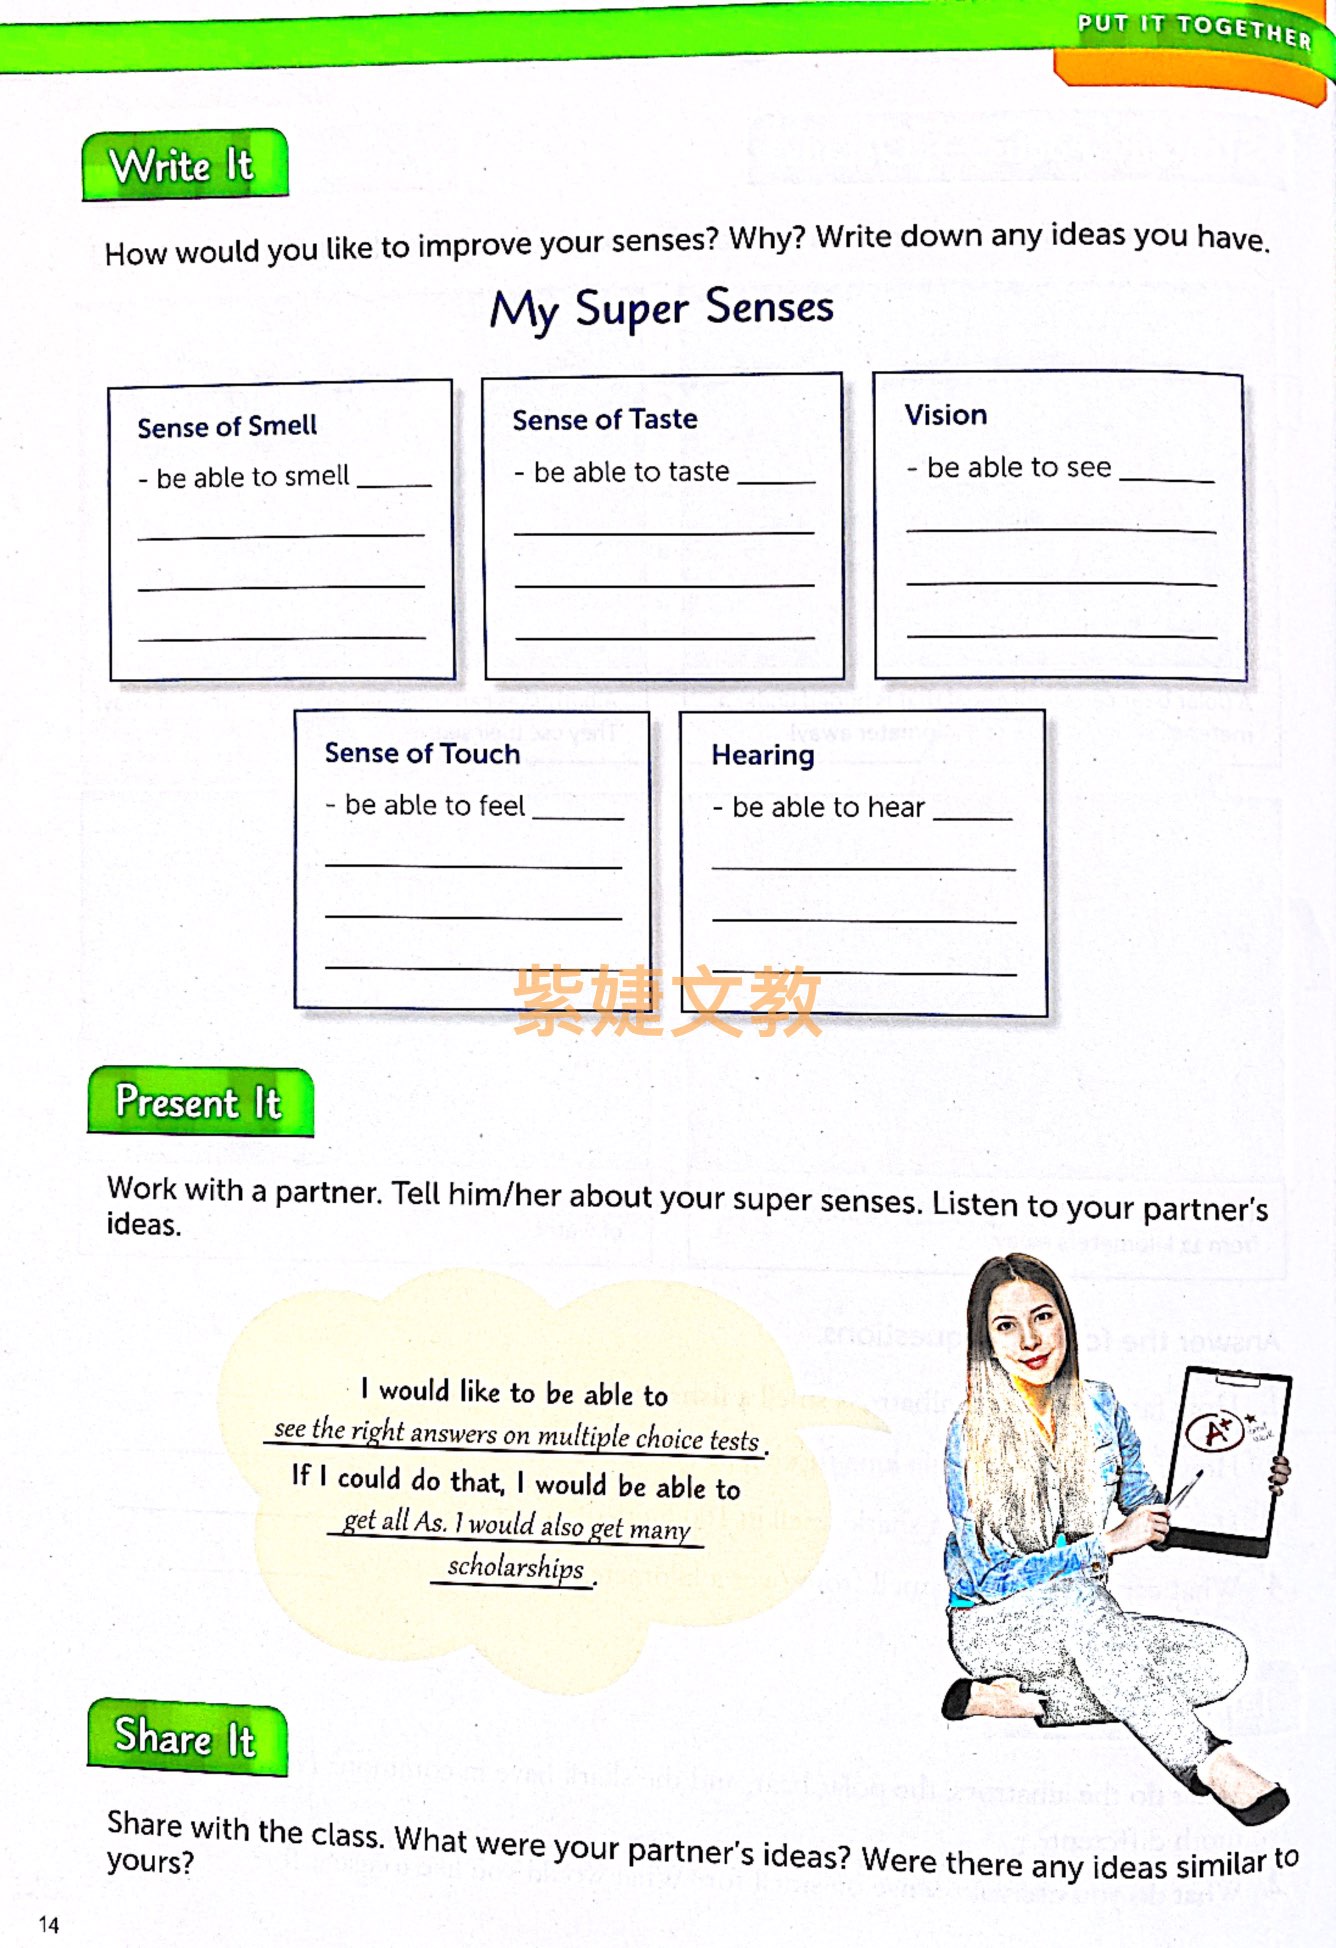 PUT IT TOGETHER
Write It
How would you like to improve your senses? Why? Write down any ideas you have.
My Super Senses
Sense of Smell
- be able to smell
Sense of Taste
- be able to taste
Vision
- be able to see
Sense of Touch
- be able to feel
Hearing
- be able to hear
紫婕文教
Present It
Work with a partner. Tell him/her about your super senses. Listen to your partner's
ideas.
I would like to be able to
see the right answers on multiple choice tests.
If I could do that, I would be able to
get all As. I would also get many
scholarships.
A+
Share It
Share with the class. What were your partner's ideas? Were there any ideas similar to
yours?
14